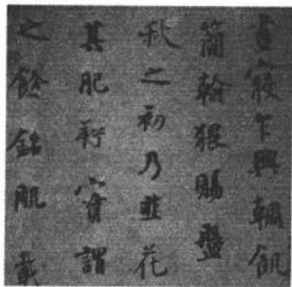 晝寢乍興輖飢
簡翰猥賜盤
秋之初乃韭花
其肥羜實謂
之餘銘肌載